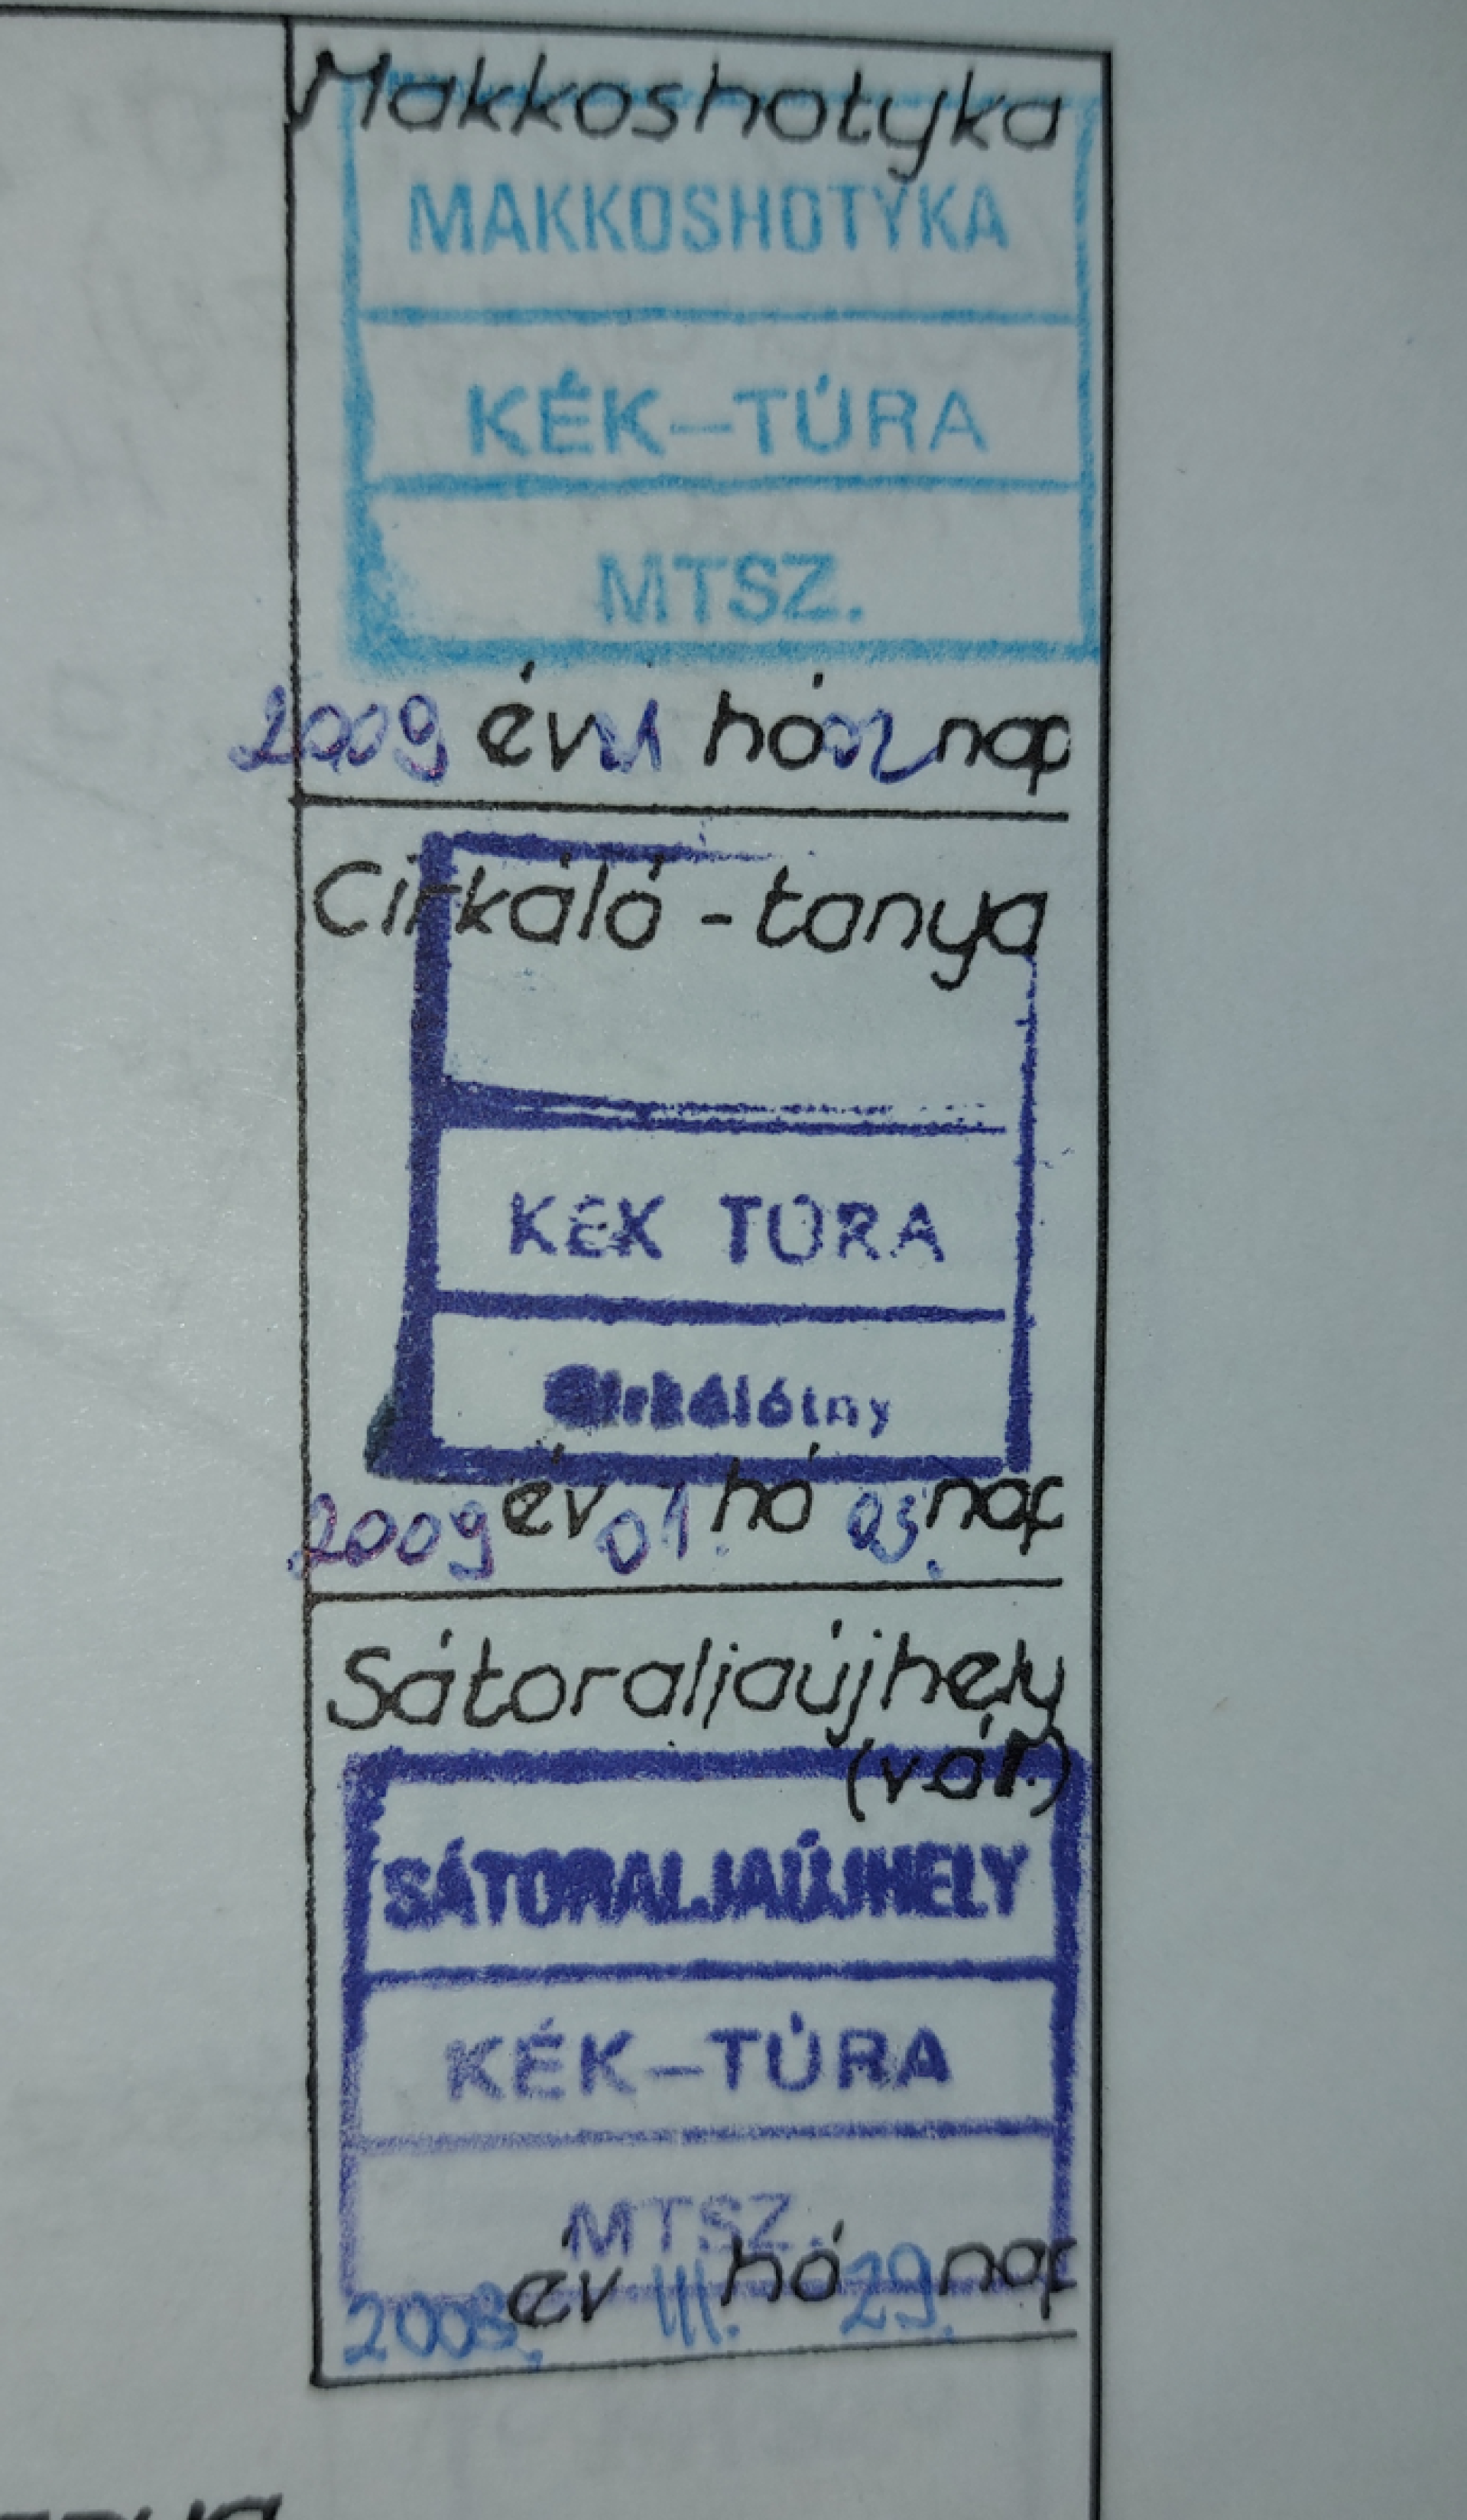 Makkoshotyka
MAKKOSHOTYKA
KÉK–TÚRA
MTSZ.
2009 év hó 02 nap
Cirkáló - tanya
KÉK TÚRA
Cirkálótny
2009 év 01. hó 03. nap
Sátoraljaújhely
(vár.)
SÁTORALJAÚJHELY
KÉK–TÚRA
MTSZ.
2008. év III. hó 29. nap